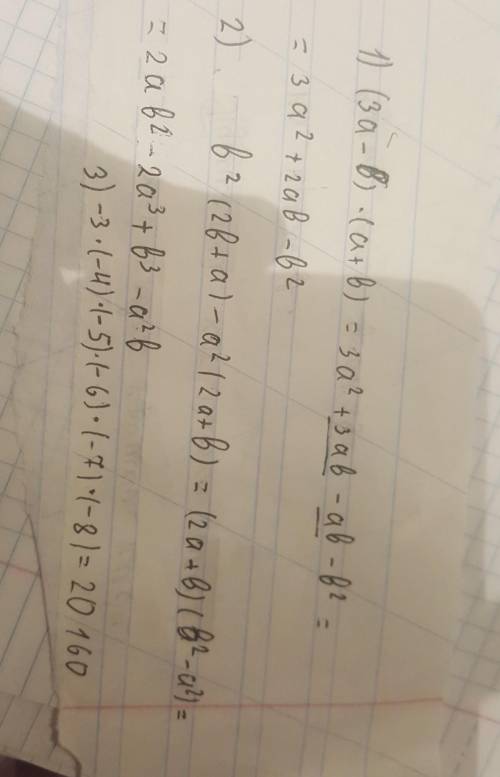 1) (3a - b) · (a + b) = 3a² + 3ab - ab - b² =
= 3a² + 2ab - b²
2) b² (2b + a) - a² (2a + b) = (2a + b) (b² - a²) =
= 2ab² - 2a³ + b³ - a²b
3) -3 · (-4) · (-5) · (-6) · (-7) · (-8) = 20 160